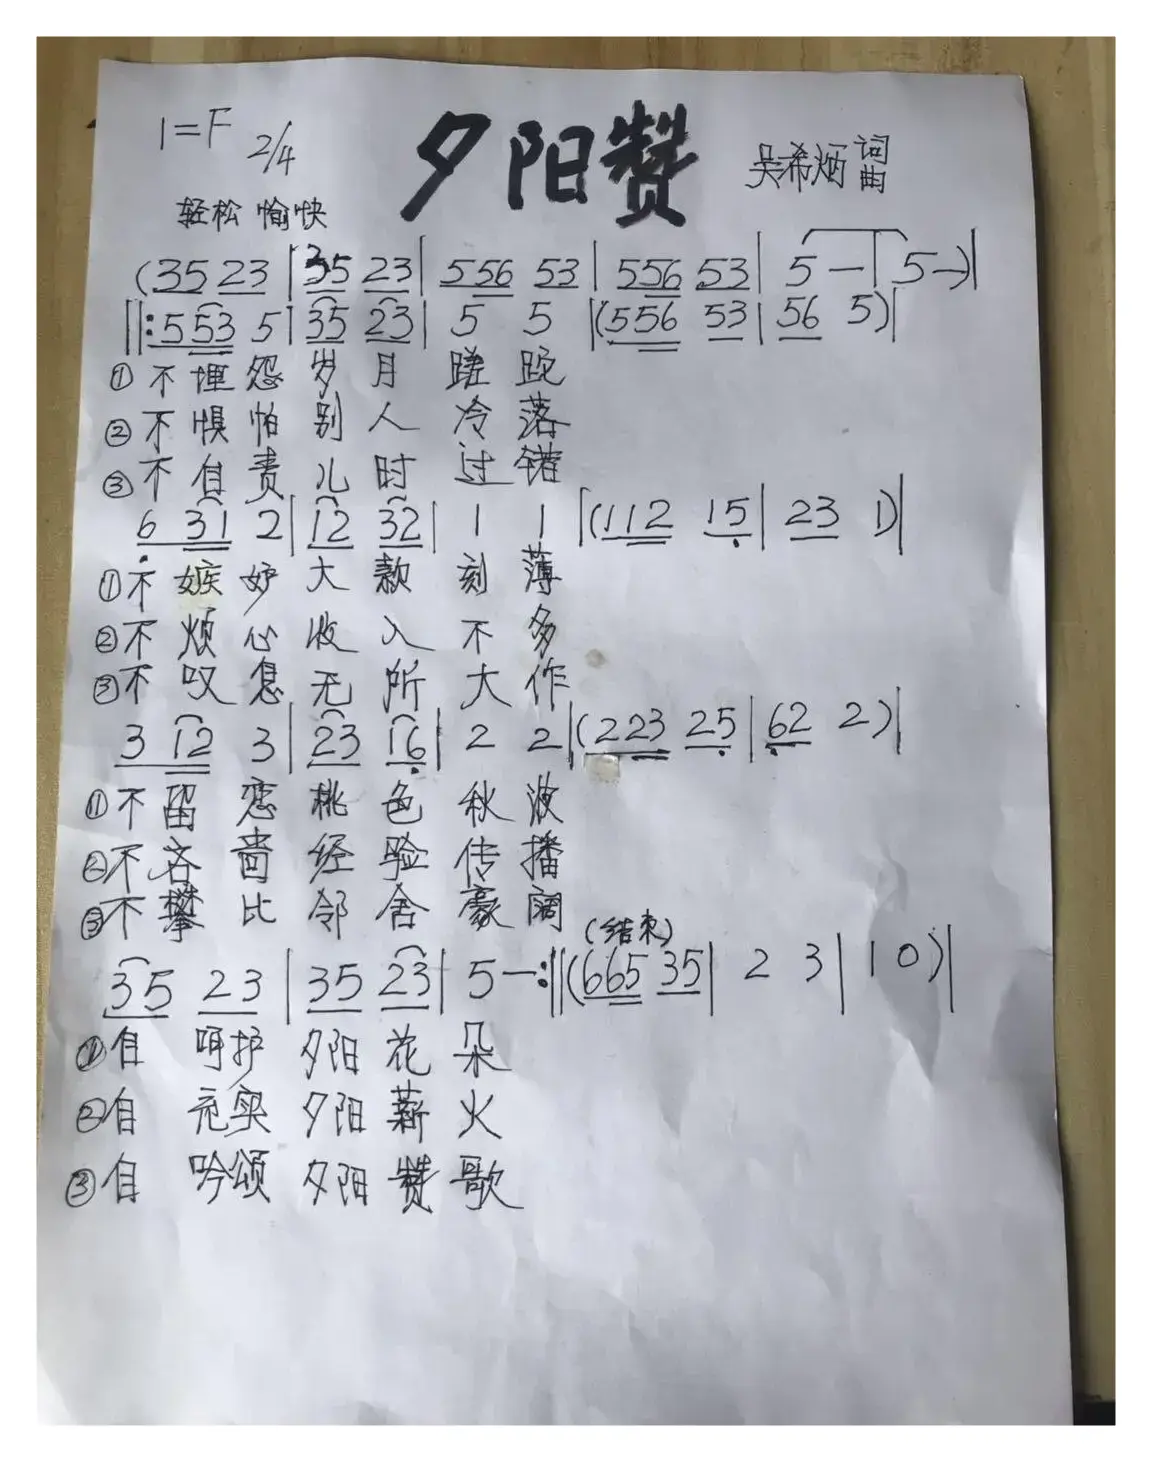 1=F 2/4 夕阳赞 吴希炳 词曲
轻松 愉快
(35 23 | 35 23 | 556 53 | 556 53 | 5 — | 5 — ) |
‖: 553 5 | 35 23 | 5 5 | (556 53 | 56 5) |
① 不埋怨岁月蹉跎
② 不惧怕别人冷落
③ 不自责儿时过错
6 31 2 | 12 32 | 1 1 | (112 15 | 23 1) |
① 不嫉妒大款刻薄
② 不烦心收入不多
③ 不叹息无所大作
3 12 3 | 23 16 | 2 2 | (223 25 | 62 2) |
① 不留恋桃色秋波
② 不吝啬经验传播
③ 不攀比邻舍豪阔
(结束)
35 23 | 35 23 | 5 — :‖ (665 35 | 2 3 | 1 0) |
① 自呵护夕阳花朵
② 自充实夕阳薪火
③ 自吟颂夕阳赞歌